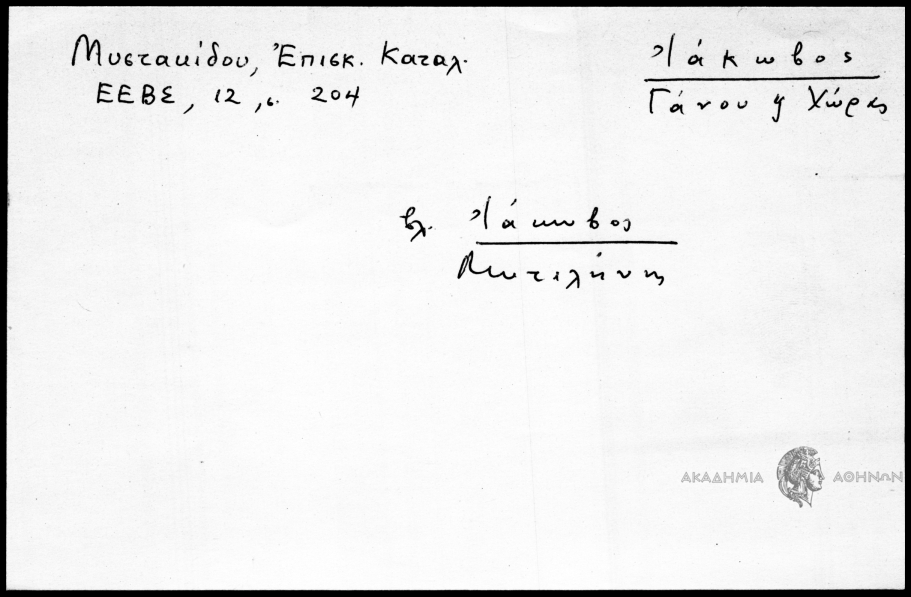 Μυστακίδου, Ἐπισκ. Καταλ.
ΕΕΒΣ, 12, σ. 204
Ἰάκωβος
Γάνου ϗ Χώρας
βλ. Ἰάκωβος
Μυτιλήνης
ΑΚΑΔΗΜΙΑ ΑΘΗΝΩΝ